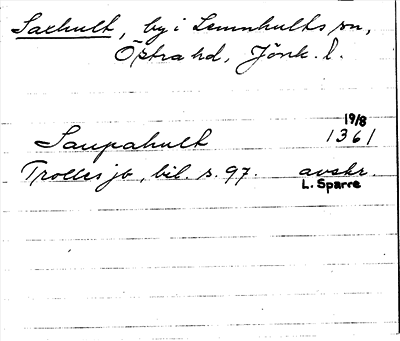 Saxhult, by i Lemnhults sn,
Östra hd, Jönk. l.
19/8
Saupahult 1361
Trolles jb, bil. s. 97. avskr.
L. Sparre